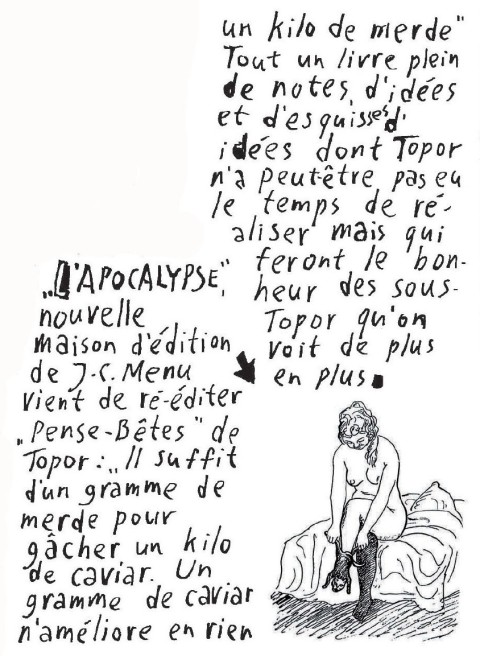 „L'APOCALYPSE",
nouvelle
maison d'édition
de J-C. Menu
vient de ré-éditer
„Pense-Bêtes" de
Topor: „Il suffit
d'un gramme de
merde pour
gâcher un kilo
de caviar. Un
gramme de caviar
n'améliore en rien
un kilo de merde"
Tout un livre plein
de notes, d'idées
et d'esquisses d'
idées dont Topor
n'a peut-être pas eu
le temps de ré-
aliser mais qui
feront le bon-
heur des sous-
Topor qu'on
voit de plus
en plus.